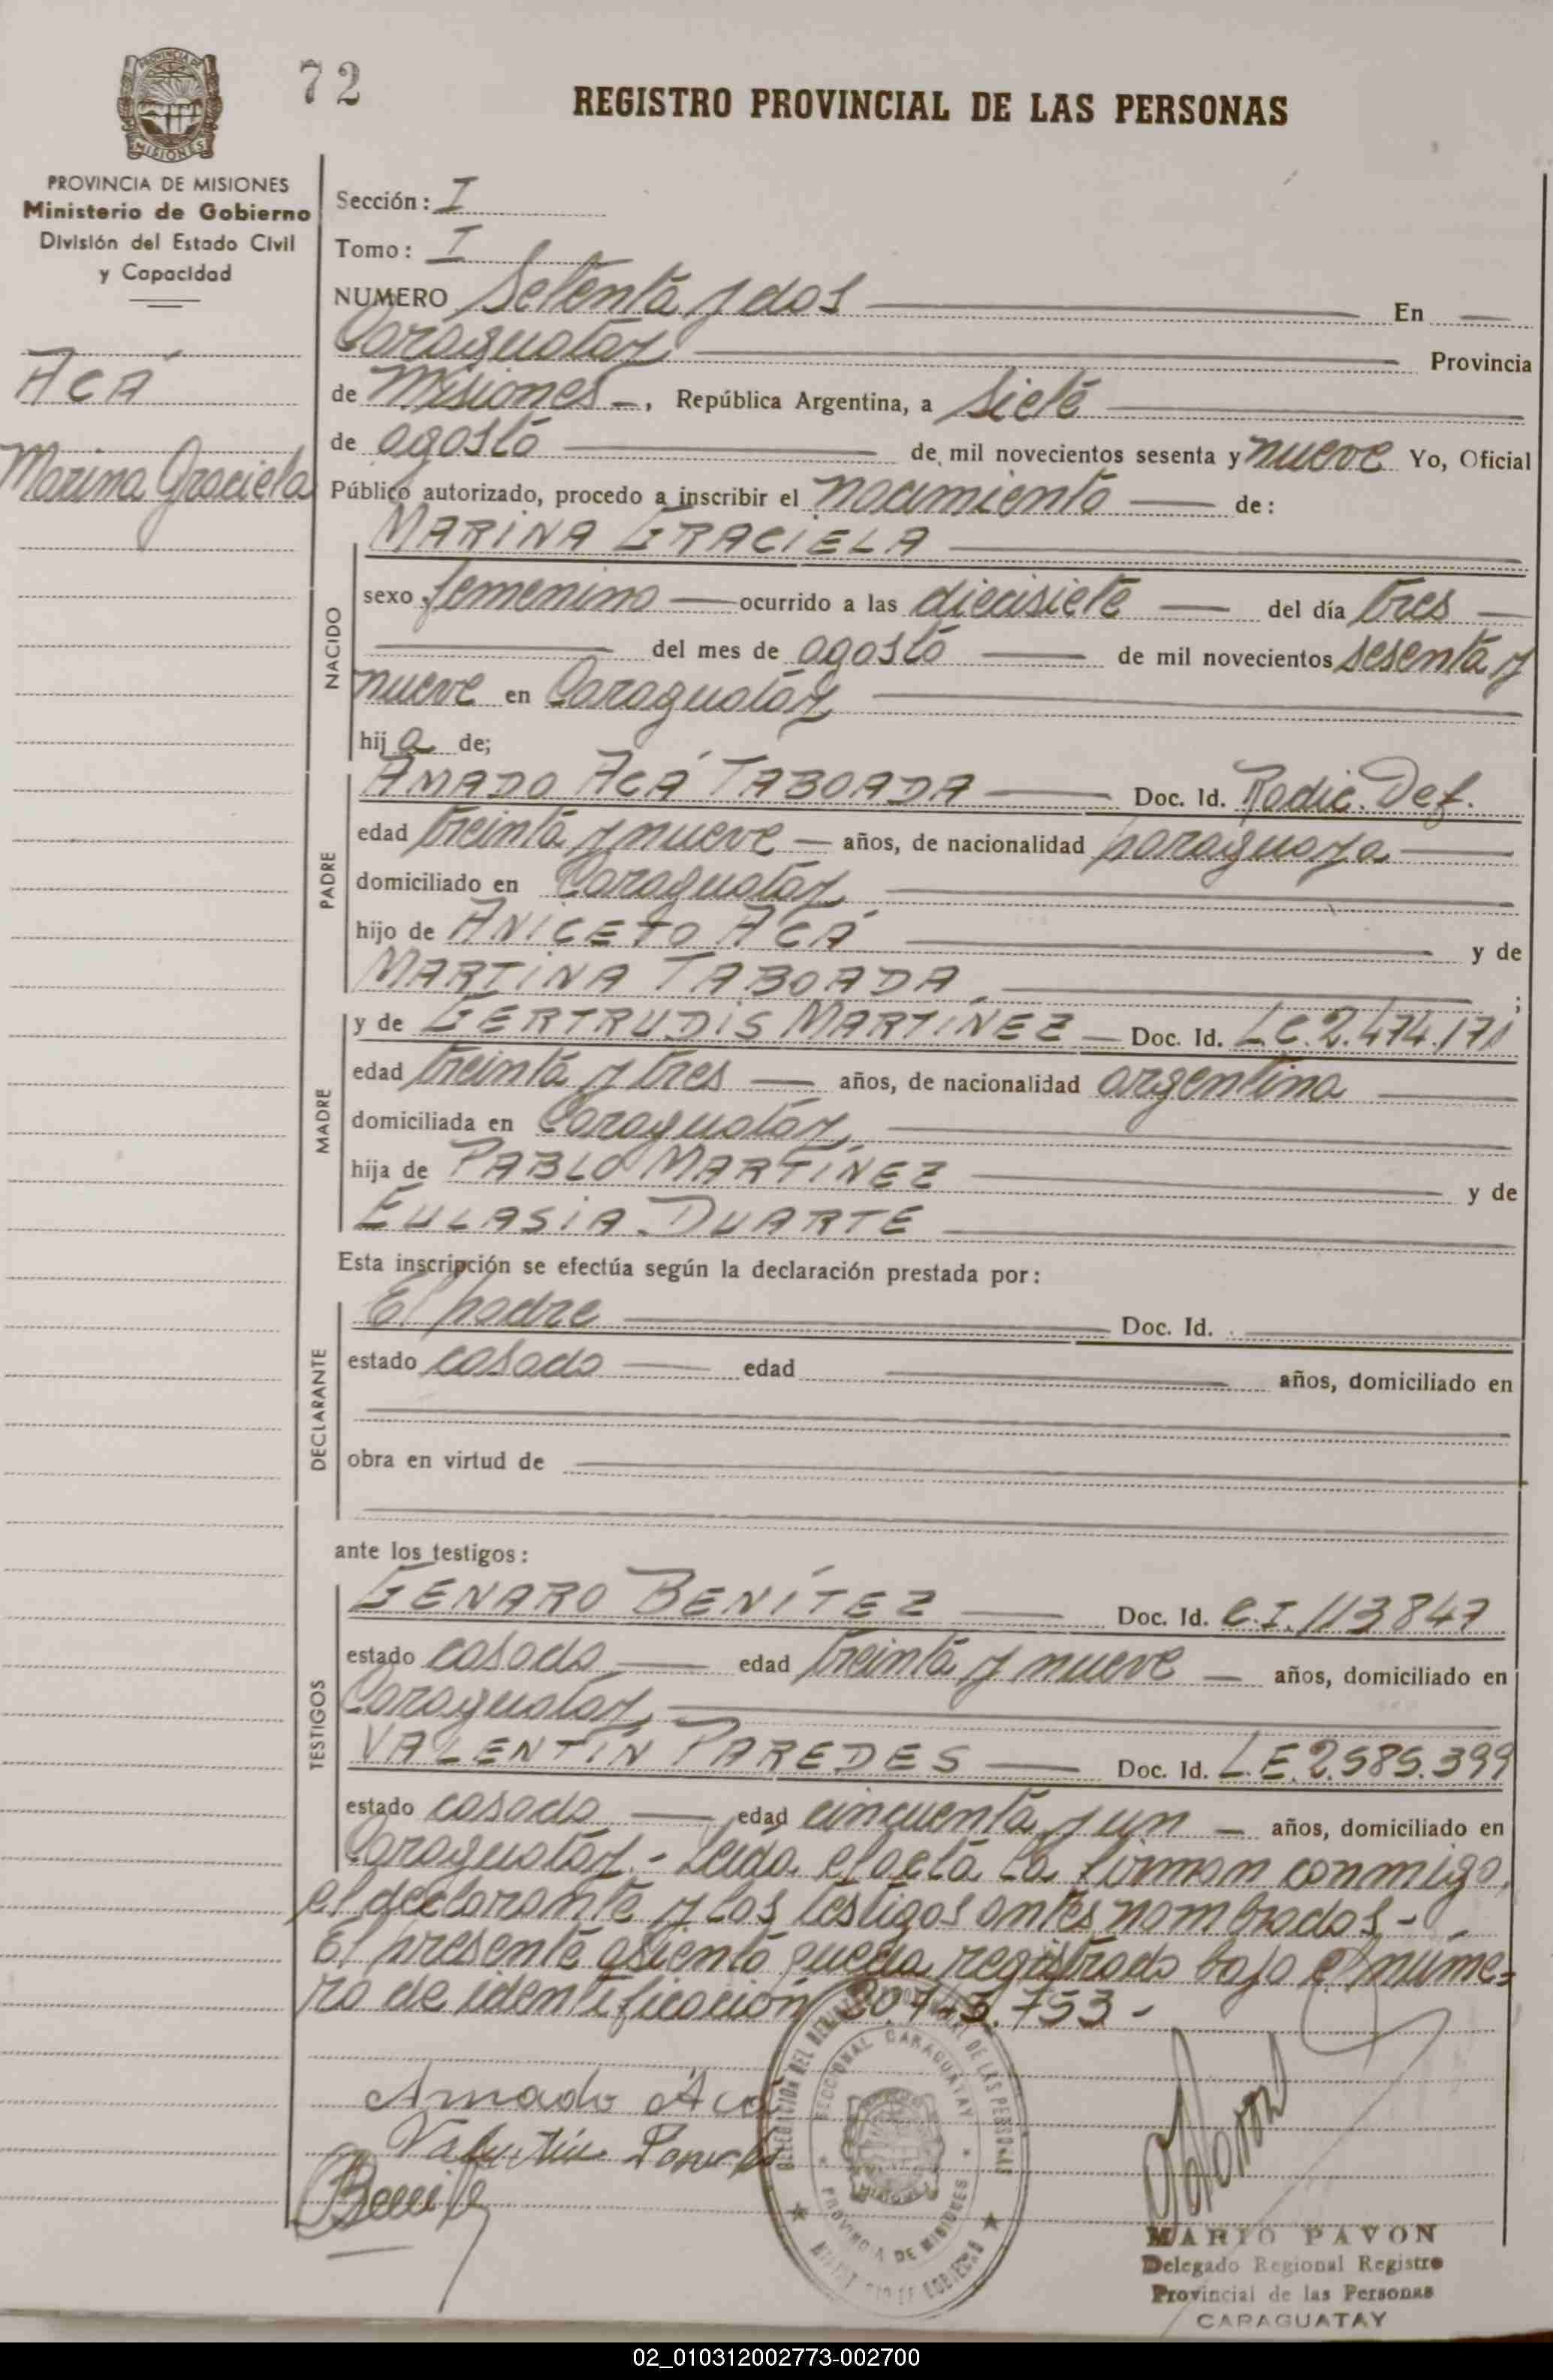 72
REGISTRO PROVINCIAL DE LAS PERSONAS
MISIONES
PROVINCIA DE MISIONES
Ministerio de Gobierno
División del Estado Civil
y Capacidad
ACÁ
Marina Graciela
Sección: I
Tomo: I
NUMERO Setenta y dos En
Caraguatay Provincia
de Misiones, República Argentina, a siete
de agosto de mil novecientos sesenta y nueve Yo, Oficial
Público autorizado, procedo a inscribir el nacimiento de:
MARINA GRACIELA
NACIDO
sexo femenino ocurrido a las diecisiete del día tres
del mes de agosto de mil novecientos sesenta y
nueve en Caraguatay
hija de;
PADRE
AMADO ACÁ TABOADA Doc. Id. Radic. Def.
edad treinta y nueve años, de nacionalidad paraguaya
domiciliado en Caraguatay
hijo de ANICETO ACÁ y de
MARTINA TABOADA ;
MADRE
y de GERTRUDIS MARTÍNEZ Doc. Id. L.C. 2.474.171
edad treinta y tres años, de nacionalidad argentina
domiciliada en Caraguatay
hija de PABLO MARTÍNEZ y de
EULASIA DUARTE
Esta inscripción se efectúa según la declaración prestada por:
DECLARANTE
El padre Doc. Id.
estado casado edad años, domiciliado en
obra en virtud de
ante los testigos:
TESTIGOS
GENARO BENÍTEZ Doc. Id. C.I. 113847
estado casado edad treinta y nueve años, domiciliado en
Caraguatay
VALENTÍN PAREDES Doc. Id. L.E. 2.585.399
estado casado edad cincuenta y un años, domiciliado en
Caraguatay.- Leída el acta la firman conmigo,
el declarante y los testigos antes nombrados.-
El presente asiento queda registrado bajo el núme-
ro de identificación 20.743.753-
Amado Acá
Valentín Paredes
Benítez
DELEGACION DEL REGISTRO PROVINCIAL DE LAS PERSONAS
SECCIONAL CARAGUATAY
PROVINCIA DE MISIONES
MINISTERIO DE GOBIERNO
MARIO PAVON
Delegado Regional Registro
Provincial de las Personas
CARAGUATAY
02_010312002773-002700